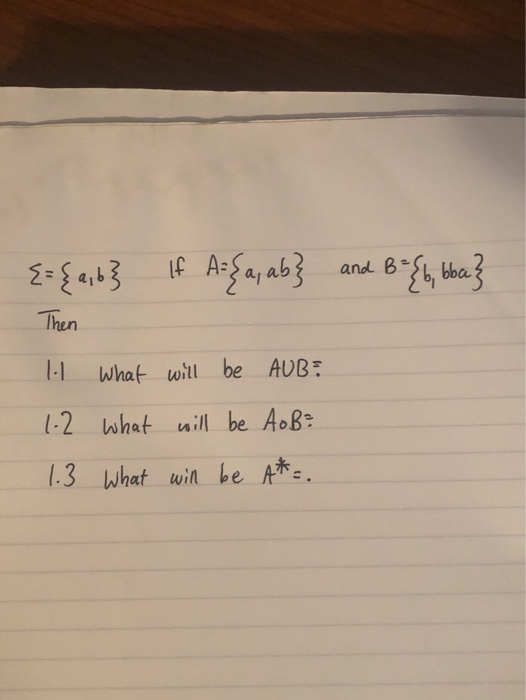 Σ={a,b} If A={a,ab} and B={b,bba}
Then
1.1 What will be AUB=
1.2 what will be AoB=
1.3 What will be A*=.